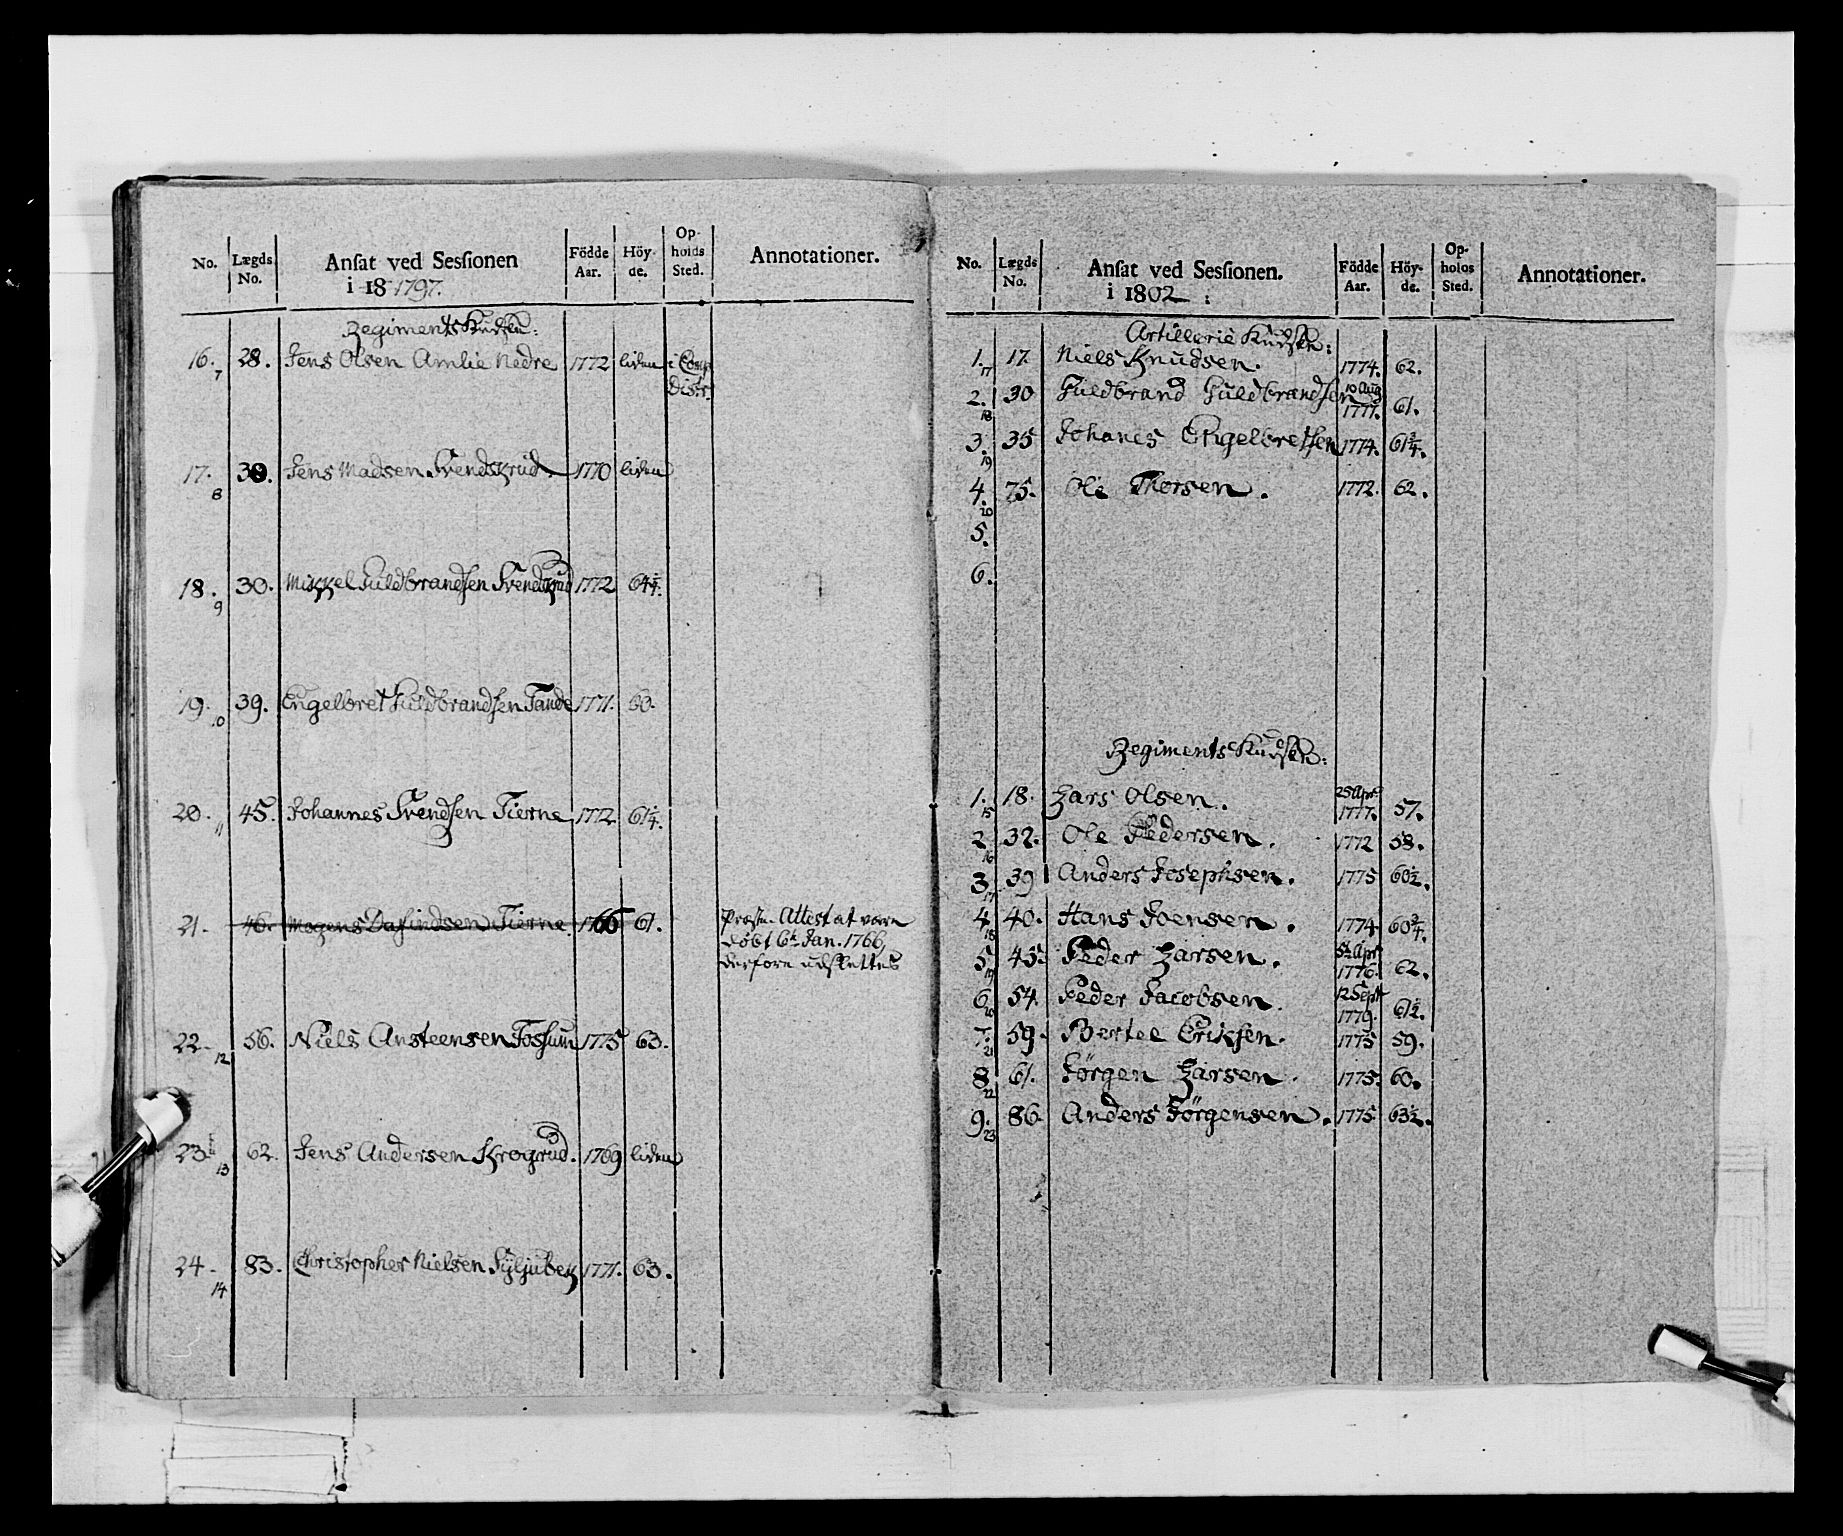 No. Lægds No. Ansat ved Sessionen i 18 1797. Födde Aar. Höy-de. Op-holds Sted. Annotationer.
Regiments Kudske:
16. 7 28. Jens Olsen Amlie Nedre 1772 liden i Comp Distr.
17. 8 30. Jens Madsen Svendsrud 1770 liden
18. 9 30. Mikkel Guldbrandsen Svendsrud 1772 64 1/4.
19. 10 39. Engelbret Guldbrandsen Tande 1771. 60.
20. 11 45. Johannes Svendsen Tierne 1772 61 1/4.
21. 46. Mogens Dafindsen Tierne 1766 61. Præste Attest at være
døbt 6te Jan. 1766,
derfore udslettes
22. 12 56. Niels Ansteensen Fossum 1775 63.
23. 13 62. Jens Andersen Krogrud. 1769 liden
24. 14 83. Christopher Nielsen Syljubek 1771. 63.
No. Lægds No. Ansat ved Sessionen. i 1802 : Födde Aar. Höy-de. Op-holds Sted. Annotationer.
Artillerie Kudske:
1. 17 17. Niels Knudsen. 1774. 62.
2. 18 30 Guldbrand Guldbrandsen 10 Aug 1777. 61.
3. 19 35 Johanes Engelbretsen 1774. 61 3/4.
4. 20 75. Ole Thorsen. 1772. 62.
5.
6.
Regiments Kudske:
1. 15 18. Lars Olsen. 25 Apr 1777. 57.
2 16 32. Ole Pedersen. 1772 58.
3 17 39 Anders Josephsen. 1775 60 1/2.
4 18 40. Hans Joensen. 1774 60 3/4.
5 19 45. Peder Larsen. 5te Apr 1776. 62.
6 20 54. Peder Jacobsen 12 Sept 1779. 61 1/2.
7. 21 59. Bertel Eriksen. 1775 59.
8 22 61. Jørgen Larsen. 1775. 60.
9. 23 86. Anders Jørgensen. 1775 63 1/2.